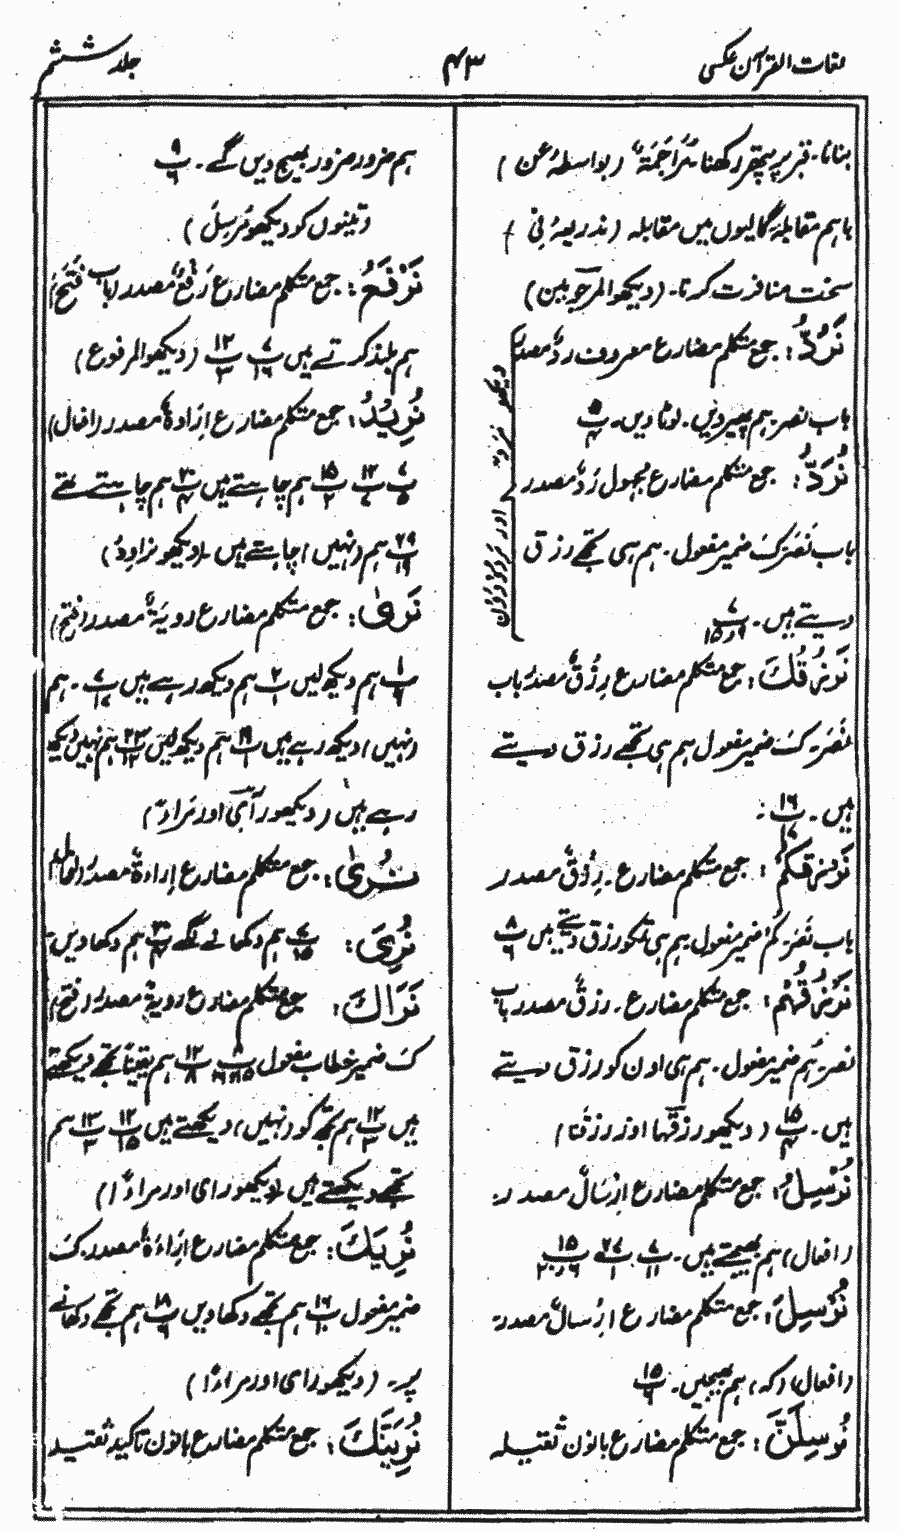 لغات القرآن عکسی
۴۳
جلد ششم
بنانا۔ قبر پر پتھر رکھنا۔ مُرَاجَمَۃٌ (بواسطہ عن)
باہم مقابلۃً گالیوں میں مقابلہ (بذریعہ فی)
سخت منافرت کرنا۔ (دیکھو المرجوبین)
نَرُدُّ: جمع متکلم مضارع معروف ردٌّ مصدر
باب نصر۔ ہم پھیر دیں۔ لوٹا دیں۔ پ ۵/۴
نُرَدُّ: جمع متکلم مضارع مجہول رَدٌّ مصدر
باب نَصَرَ کَ ضمیر مفعول۔ ہم ہی تجھے رزق
دیتے ہیں۔ پ ۷/۹و۱۵
دیکھو نرد اور مردودون
نَرْزُقُكَ: جمع متکلم مضارع رِزْقٌ مصدر باب
نَصَرَ۔ کَ ضمیر مفعول ہم ہی تجھے رزق دیتے
ہیں۔ پ ۱۶/۱۷
نَرْزُقُكُمْ: جمع متکلم مضارع۔ رِزْقٌ مصدر
باب نَصَرَ۔ کُمْ ضمیر مفعول ہم ہی تمکو رزق دیتے ہیں پ ۸/۶
نَرْزُقُهُمْ: جمع متکلم مضارع۔ رزقٌ مصدر باب
نصر۔ ہُم ضمیر مفعول۔ ہم ہی اون کو رزق دیتے
ہیں۔ پ ۱۵/۴ (دیکھو رزقہا اور رزقنا)
نُرْسِلُ: جمع متکلم مضارع ارْسَالٌ مصدر
(افعال) ہم بھیجتے ہیں۔ پ ۷/۱۱ پ ۲۷/۱ پ ۱۵/۶و۲۰
نُرْسِلَ: جمع متکلم مضارع ارْسالٌ مصدر
(افعال) (کہ) ہم بھیجیں۔ پ ۱۵/۶
نُرْسِلَنَّ: جمع متکلم مضارع بانون ثقیلہ
ہم ضرور ضرور بھیج دیں گے۔ پ ۹/۶
(تینوں کو دیکھو مُرسِلُ)
نَرْفَعُ: جمع متکلم مضارع رَفْعٌ مصدر (باب فَتَحَ)
ہم بلند کرتے ہیں پ ۷/۱۶ پ ۱۳/۳ (دیکھو المرفوع)
نُرِيدُ: جمع متکلم مضارع اِرَادۃٌ مصدر (افعال)
پ ۷/۵ پ ۱۲/۷ پ ۱۵/۲ ہم چاہتے ہیں پ ۲۰/۴ ہم چاہتے تھے
پ ۲۹/۱۹ ہم (نہیں) چاہتے ہیں۔ (دیکھو نراوِدُ)
نَرَىٰ: جمع متکلم مضارع رویۃٌ مصدر (فتح)
پ ۱/۶ ہم دیکھ لیں پ ۲/۱ ہم دیکھ رہے ہیں پ ۷/۱۷۔ ہم
(نہیں) دیکھ رہے ہیں پ ۱۹/۱ ہم دیکھ لیں پ ۲۳/۱۳ ہم نہیں دیکھ
رہے ہیں (دیکھو رأی اور مَراد)
نُرِيَ: جمع متکلم مضارع اِراءۃٌ مصدر (افعال)
نُرِيَ: پ ۷/۱۵ ہم دکھانے لگے پ ۲۰/۴ ہم دکھا دیں۔
نَرَاكَ: جمع متکلم مضارع رویۃٌ مصدر (فتح)
کَ ضمیر خطاب مفعول پ ۸/۱۵و۱۶ پ ۱۲/۸ ہم یقیناً تجھے دیکھتے
ہیں پ ۱۲/۳ ہم تجھ کو (نہیں) دیکھتے ہیں پ ۱۲/۱۵ پ ۱۳/۳ ہم
تجھے دیکھتے ہیں (دیکھو رای اور مراءً ا)
نُرِيَكَ: جمع متکلم مضارع اِرَاءَۃٌ مصدر۔ کَ
ضمیر مفعول پ ۱۶/۱۰ ہم تجھے دکھا دیں پ ۱۸/۶ ہم تجھے دکھانے
پر۔ (دیکھو رای اور مراءً ا)
نُرِيَنَّكَ: جمع متکلم مضارع بانون تاکید ثقیلہ